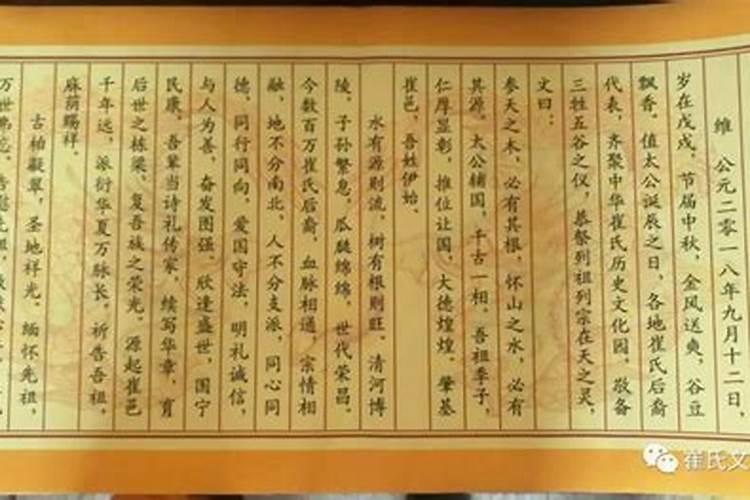 维 公元二零一八年九月十二日，
岁在戊戌，节届中秋，金风送爽，谷豆
飘香。值太公诞辰之日，各地崔氏后裔
代表，齐聚中华崔氏历史文化园，敬备
三牲五谷之仪，恭祭列祖列宗在天之灵，
文曰：
参天之木，必有其根，怀山之水，必有
其源。太公辅国，千古一相。吾祖季子，
仁厚显彰，推位让国，大德煌煌。肇基
崔邑，吾姓伊始。
水有源则流，树有根则旺。清河博
陵，子孙繁息，瓜瓞绵绵，世代荣昌。
今数百万崔氏后裔，血脉相通，宗情相
融，地不分南北，人不分支派，同心同
德，同行同向，爱国守法，明礼诚信，
与人为善，奋发图强。欣逢盛世，国宁
民康。吾辈当诗礼传家，续写华章，育
后世之栋梁，复吾族之荣光。源起崔邑
千年远，派衍华夏万脉长。祈告吾祖，
庥荫赐祥。
古柏凝翠，圣地祥光。缅怀先祖，
万世弗忘。告慰先祖，
崔氏文